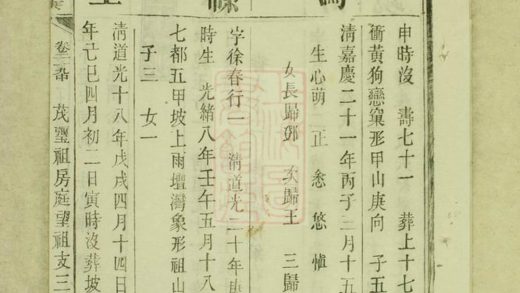 申時沒 壽七十一 葬上十七
衝黃狗戀窠形甲山庚向 子五
清嘉慶二十一年丙子二月十五
生心萌 正 悠 愃
女長歸鄧 次歸王 三歸
字徐春行一 清道光二十年庚
時生 光緒八年壬午五月十八
七都五甲坡上雨壇灣象形祖山
子三 女一
清道光十八年戊戌四月十四日
年亡巳四月初二日寅時沒葬坡
茂璽祖房庭望祖支三